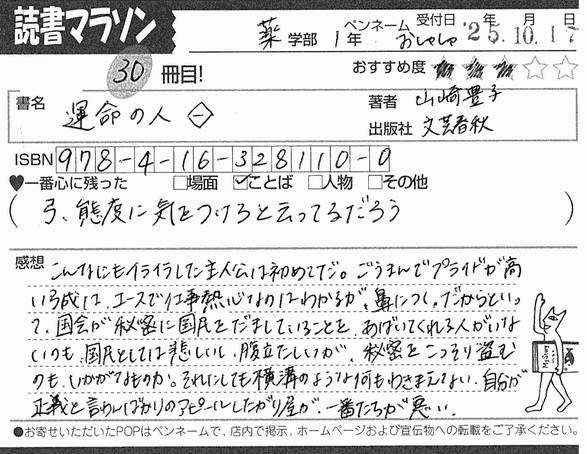 読書マラソン
薬 学部 1年 ペンネーム おしゃしゃ 受付日 '25年 10月 17日
30 冊目!
おすすめ度 ★★★☆☆
書名 運命の人 ㊀
著者 山崎豊子
出版社 文芸春秋
ISBN 978-4-16-328110-0
♥一番心に残った □場面 ☑ことば □人物 □その他
(弓、態度に気をつけろと云ってるだろう)
感想 こんなにもイライラした主人公は初めてだ。ごうまんでプライドが高
い弓成は、エースで仕事熱心なのはわかるが、鼻につく。だからといっ
て、国会が秘密に国民をだましていることを、あばいてくれる人がいな
いのも、国民としては悲しいし、腹立たしいが、秘密をこっそり盗む
のも、いかがなものか。それにしても横溝のような何もわきまえない、自分が
正義と言わんばかりのアピールしたがり屋が、一番たちが悪い。
●お寄せいただいたPOPはペンネームで、店内で掲示、ホームページおよび宣伝物への転載をご了承ください。